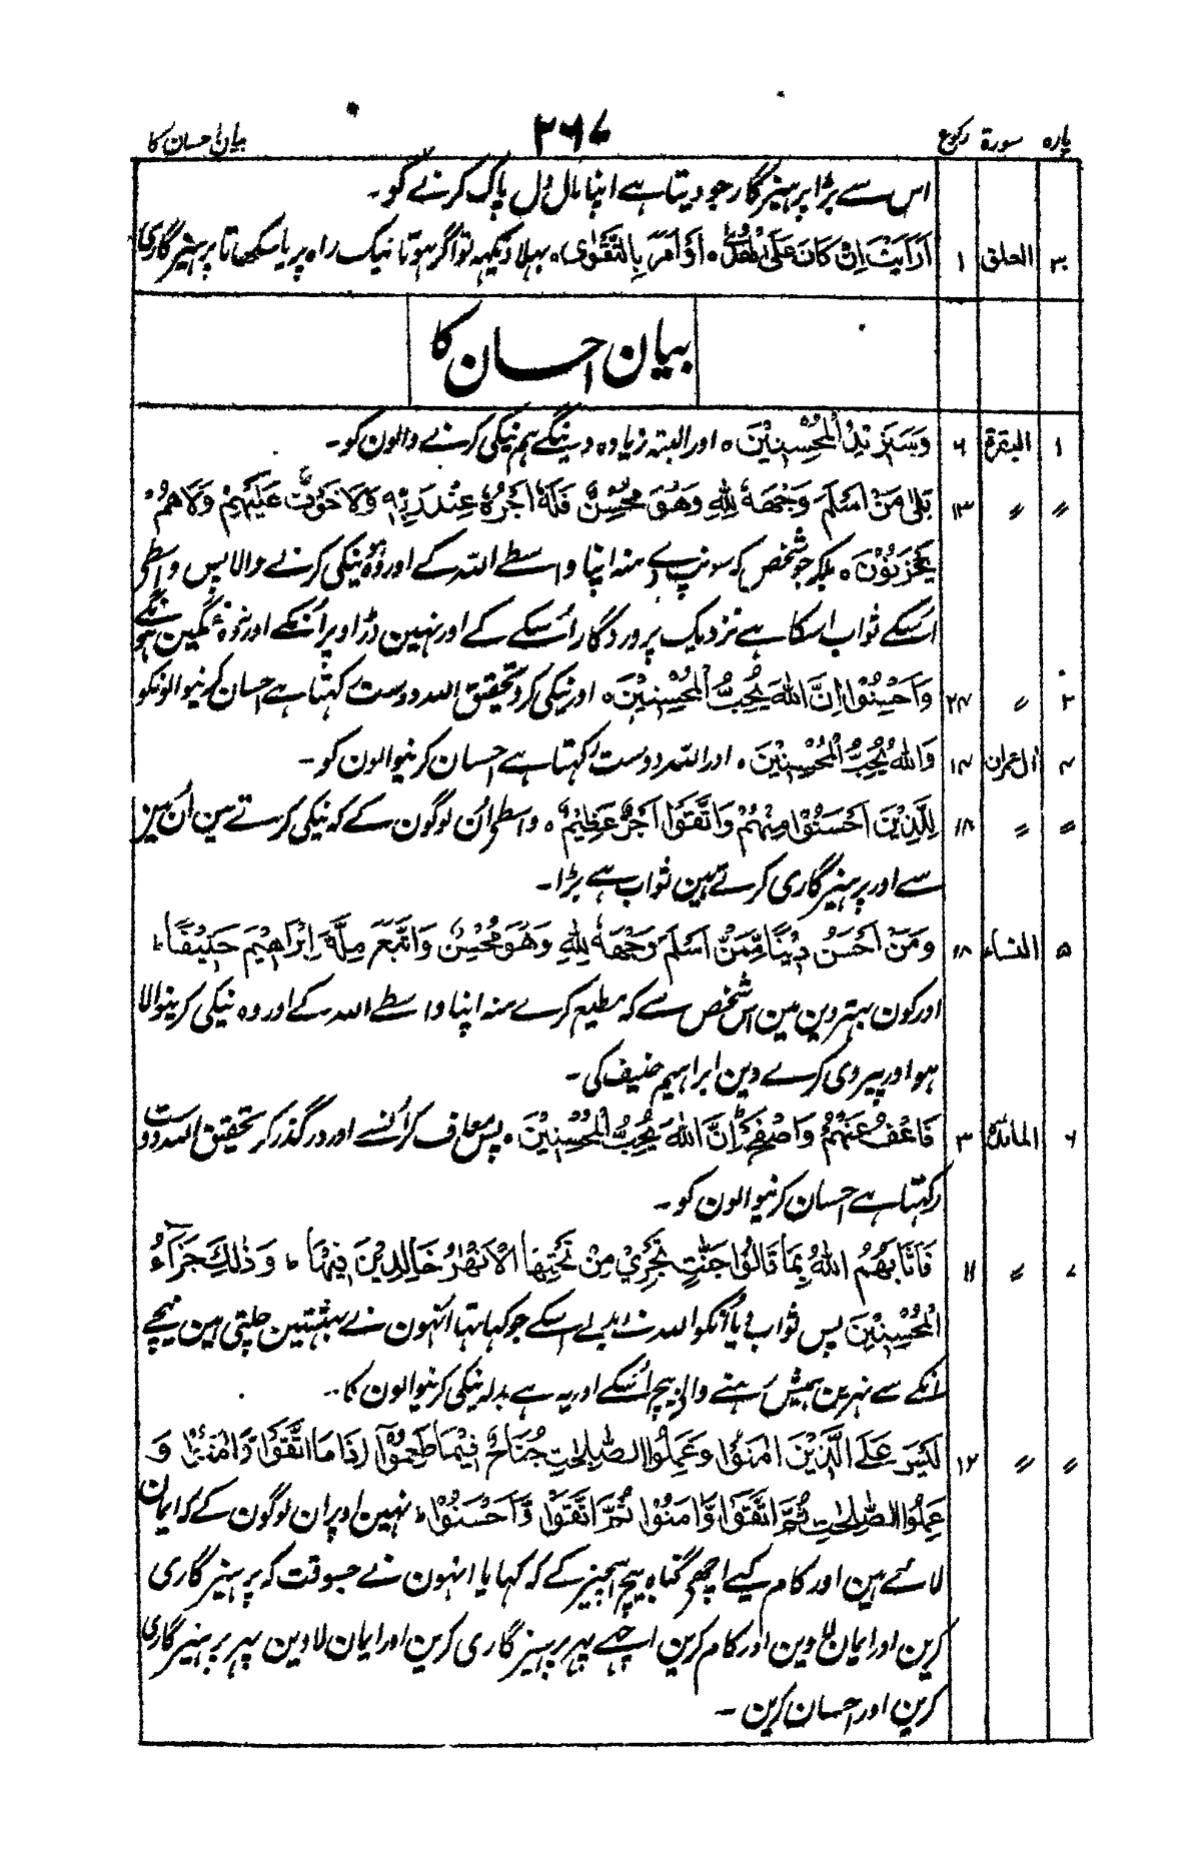 پارہ سورۃ رکوع ۲۶۷ بیان احسان کا
اس سے بڑا پرہیزگار جو دیتا ہے اپنا مال دل پاک کرنے کو۔
۳۰ العلق ۱ اَرَاَیْتَ اِنْ كَانَ عَلَی الْهُدٰۤی ہ اَوْ اَمَرَ بِالتَّقْوٰی ہ بہلا دیکہہ تو اگر ہوتا نیک راہ پر یا سکھاتا پرہیزگاری
بیان احسان کا
۱ البقرۃ ۶ وَسَنَزِیْدُ الْمُحْسِنِیْنَ ہ اور البتہ زیادہ دینگے ہم نیکی کرنے والون کو۔
〃 〃 ۱۳ بَلٰی مَنْ اَسْلَمَ وَجْهَهٗ لِلّٰهِ وَهُوَ مُحْسِنٌ فَلَهٗۤ اَجْرُهٗ عِنْدَ رَبِّهٖ وَلَا خَوْفٌ عَلَیْهِمْ وَلَا هُمْ
یَحْزَنُوْنَ ہ بلکہ جو شخص کہ سونپ دے منہ اپنا واسطے اللہ کے اور وہ نیکی کرنے والا پس واسطے
اسکے ثواب اسکا ہے نزدیک پروردگار اُسکے کے اور نہین ڈر اوپر اُنکے اور نہ وہ غمگین ہونگے
۲ 〃 ۲۴ وَاَحْسِنُوْا اِنَّ اللّٰهَ یُحِبُّ الْمُحْسِنِیْنَ ہ اور نیکی کرو تحقیق اللہ دوست رکہتا ہے احسان کرنیوالونکو
۴ ال عمران ۱۴ وَاللّٰهُ یُحِبُّ الْمُحْسِنِیْنَ ہ اور اللہ دوست رکہتا ہے احسان کرنیوالون کو۔
〃 〃 ۱۸ لِلَّذِیْنَ اَحْسَنُوْا مِنْهُمْ وَاتَّقَوْا اَجْرٌ عَظِیْمٌ ہ واسطے اُن لوگون کے کہ نیکی کرتے ہین اُن مین
سے اور پرہیزگاری کرتے ہین ثواب ہے بڑا۔
۵ النساء ۱۸ وَمَنْ اَحْسَنُ دِیْنًا مِّمَّنْ اَسْلَمَ وَجْهَهٗ لِلّٰهِ وَهُوَ مُحْسِنٌ وَاتَّبَعَ مِلَّةَ اِبْرَاهِیْمَ حَنِیْفًا ط
اور کون بہتر دین مین اس شخص سے کہ مطیع کرے منہ اپنا واسطے اللہ کے اور وہ نیکی کرینوالا
ہو اور پیروی کرے دین ابراہیم حنیف کی۔
۶ المائدہ ۳ فَاعْفُ عَنْهُمْ وَاصْفَحْ اِنَّ اللّٰهَ یُحِبُّ الْمُحْسِنِیْنَ ہ پس معاف کر اُنسے اور درگذر کر تحقیق اللہ دوست
رکہتا ہے احسان کرنیوالون کو۔
۷ 〃 ۱۱ فَاَثَابَهُمُ اللّٰهُ بِمَا قَالُوْا جَنّٰتٍ تَجْرِیْ مِنْ تَحْتِهَا الْاَنْهٰرُ خَالِدِیْنَ فِیْهَا ط وَذٰلِكَ جَزَآءُ
الْمُحْسِنِیْنَ پس ثواب دیا اُنکو اللہ نے بدلے اسکے جو کہا تہا انہون نے بہشتین چلتی ہین نیچے
انکے سے نہرین ہمیش رہنے والے بیچ اُسکے اور یہ ہے بدلہ نیکی کرنیوالون کا۔
〃 〃 ۱۲ لَیْسَ عَلَی الَّذِیْنَ اٰمَنُوْا وَعَمِلُوا الصّٰلِحٰتِ جُنَاحٌ فِیْمَا طَعِمُوْۤا اِذَا مَا اتَّقَوْا وَّاٰمَنُوْا وَ
عَمِلُوا الصّٰلِحٰتِ ثُمَّ اتَّقَوْا وَّاٰمَنُوْا ثُمَّ اتَّقَوْا وَّاَحْسَنُوْا ط نہین اوپر ان لوگون کے کہ ایمان
لائے ہین اور کام کیے اچھے گناہ بیچ اسچیز کے کہ کہایا انہون نے جسوقت کہ پرہیزگاری
کرین اور ایمان لاوین اور کام کرین اچھے پہر پرہیزگاری کرین اور ایمان لاوین پہر پرہیزگاری
کرین اور احسان کرین۔